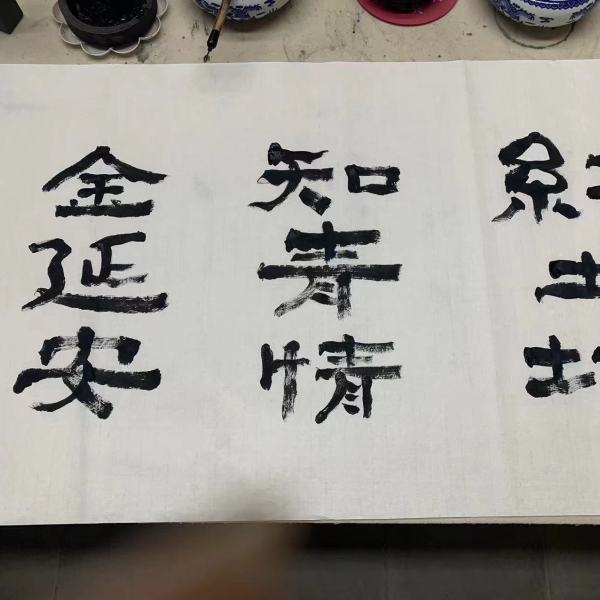 土
知青情
金延安